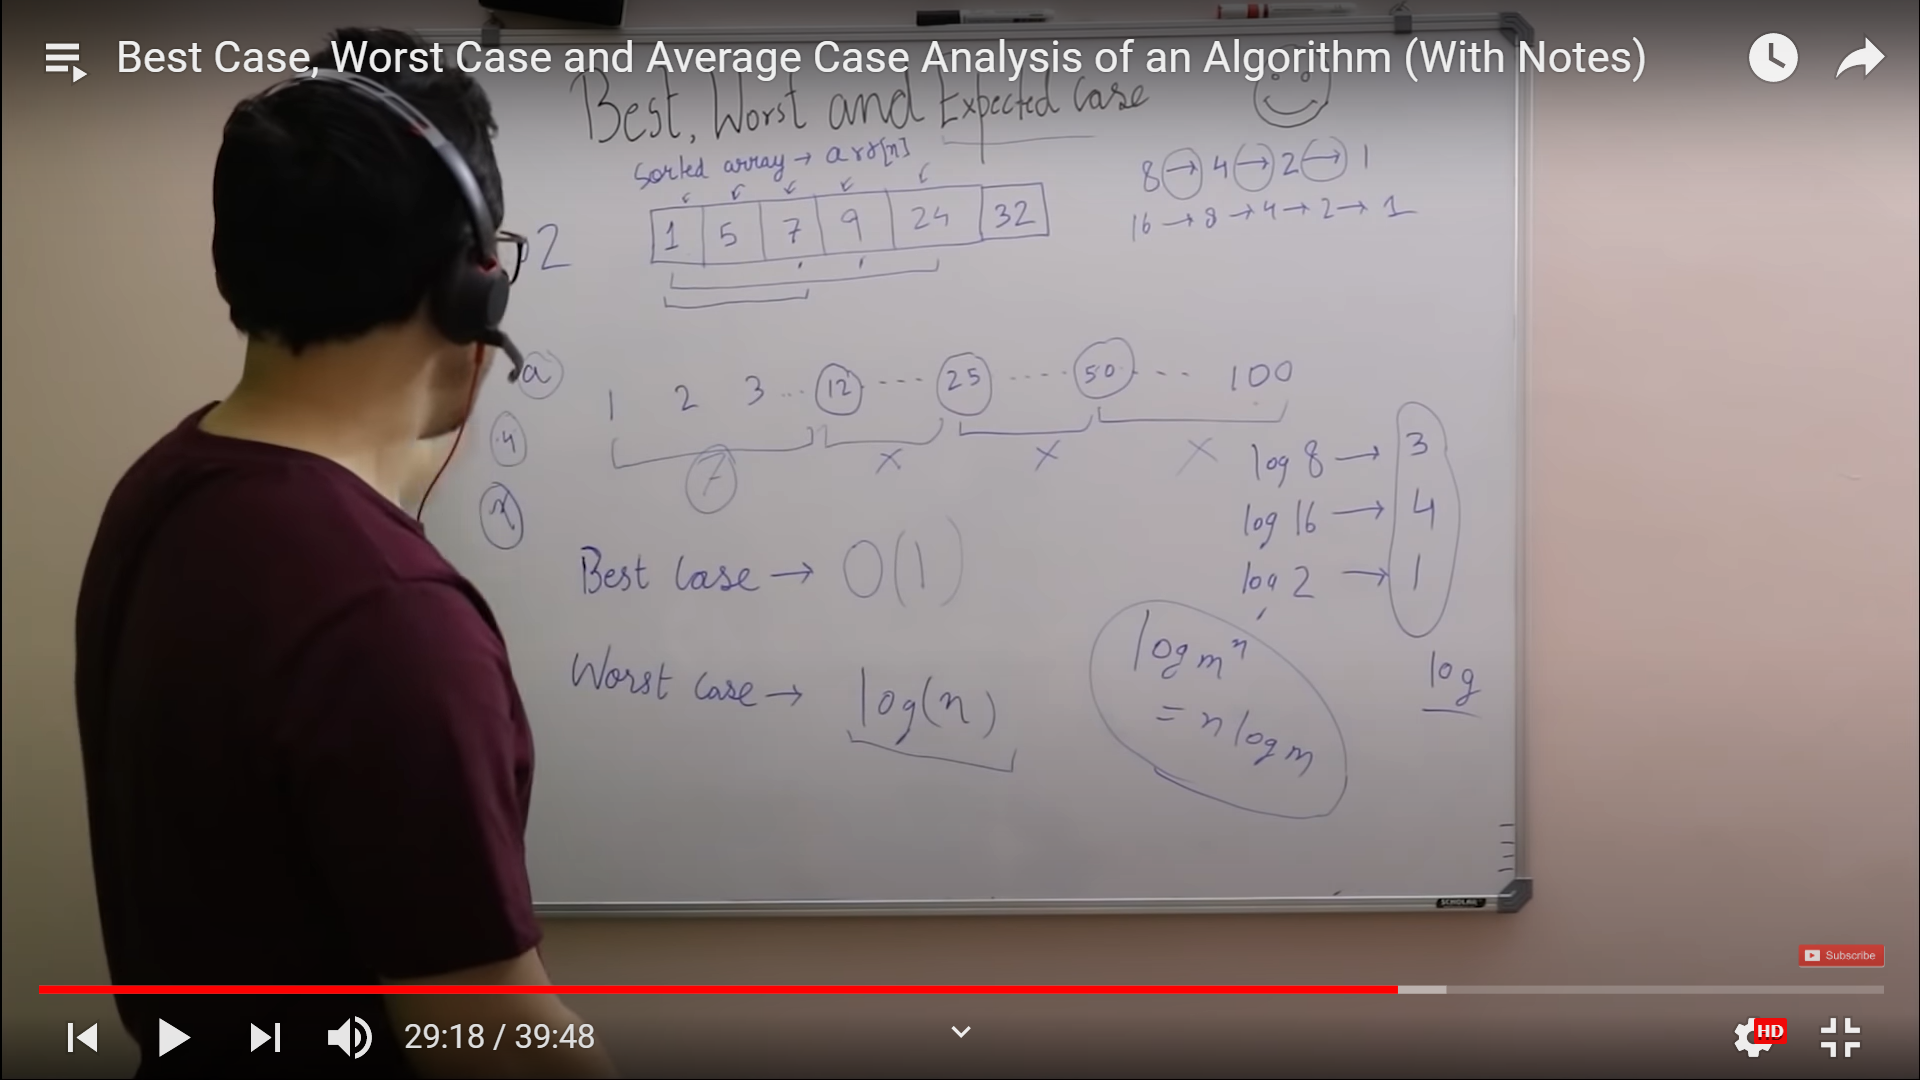 Best Case, Worst Case and Average Case Analysis of an Algorithm (With Notes)
Best, Worst and Expected Case
Sorted array → arr[n]
8 → 4 → 2 → 1
16 → 8 → 4 → 2 → 1
2
1 5 7 9 24 32
a
1 2 3 ... 12 ---- 25 ..... 50 --- 100
7 x x x
4
x
log 8 → 3
log 16 → 4
log 2 → 1
Best Case → O(1)
Worst case → log(n)
log mⁿ
= n log m
log
SCHOLAR
Subscribe
29:18 / 39:48
HD